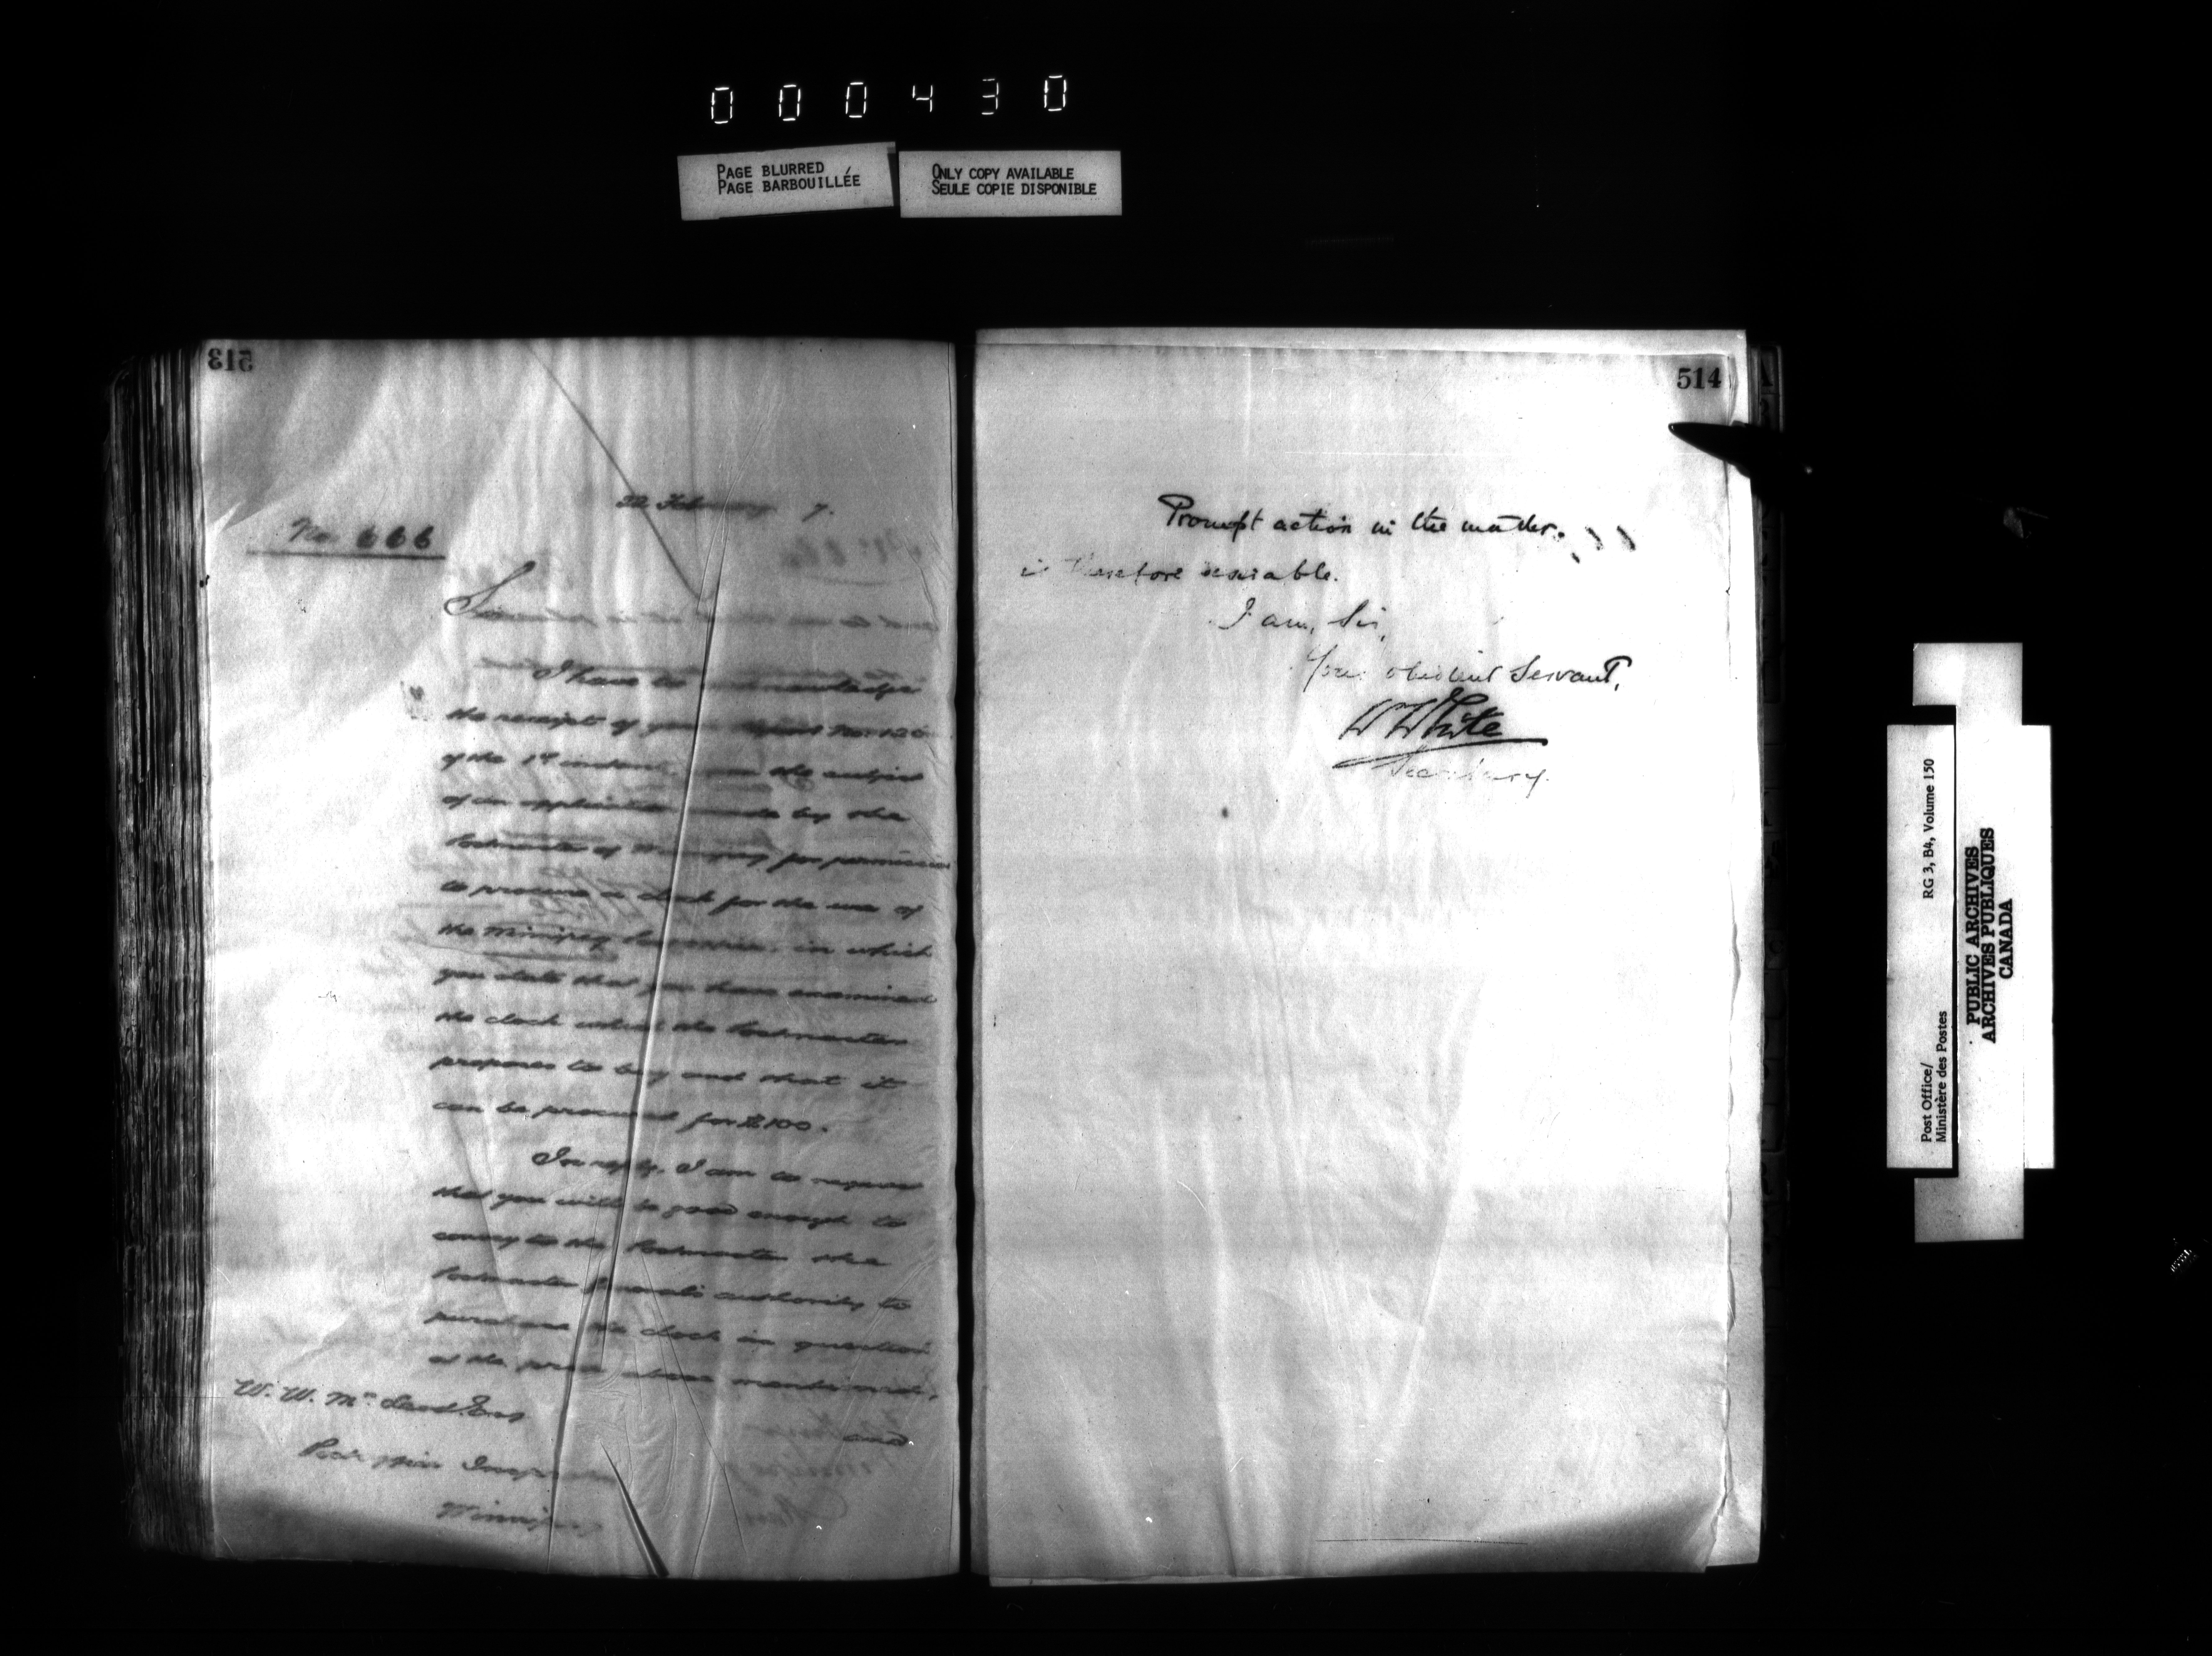 000430
PAGE BLURRED
PAGE BARBOUILLÉE
ONLY COPY AVAILABLE
SEULE COPIE DISPONIBLE
513
22 February 7.
No. 666
Sir
I have to acknowledge
the receipt of your Report No. 120
of the 1st instant, upon the subject
of an application made by the
Postmaster of Winnipeg for permission
to procure a clock for the use of
the Winnipeg in which
you state that you have examined
the clock which the Postmaster
proposes to buy and that it
can be procured for $100.
In reply, I am to request
that you will be good enough to
convey to the Postmaster the
Postmaster General's authority to
purchase the clock in question
at the price above mentioned,
and
W. W. McLeod Esq
Post Office Inspector
Winnipeg
514
Prompt action in the matter
is therefore desirable.
I am, Sir,
Your obedient Servant,
W White
Secretary.
Post Office/
Ministère des Postes
RG 3, B4, Volume 150
PUBLIC ARCHIVES
ARCHIVES PUBLIQUES
CANADA